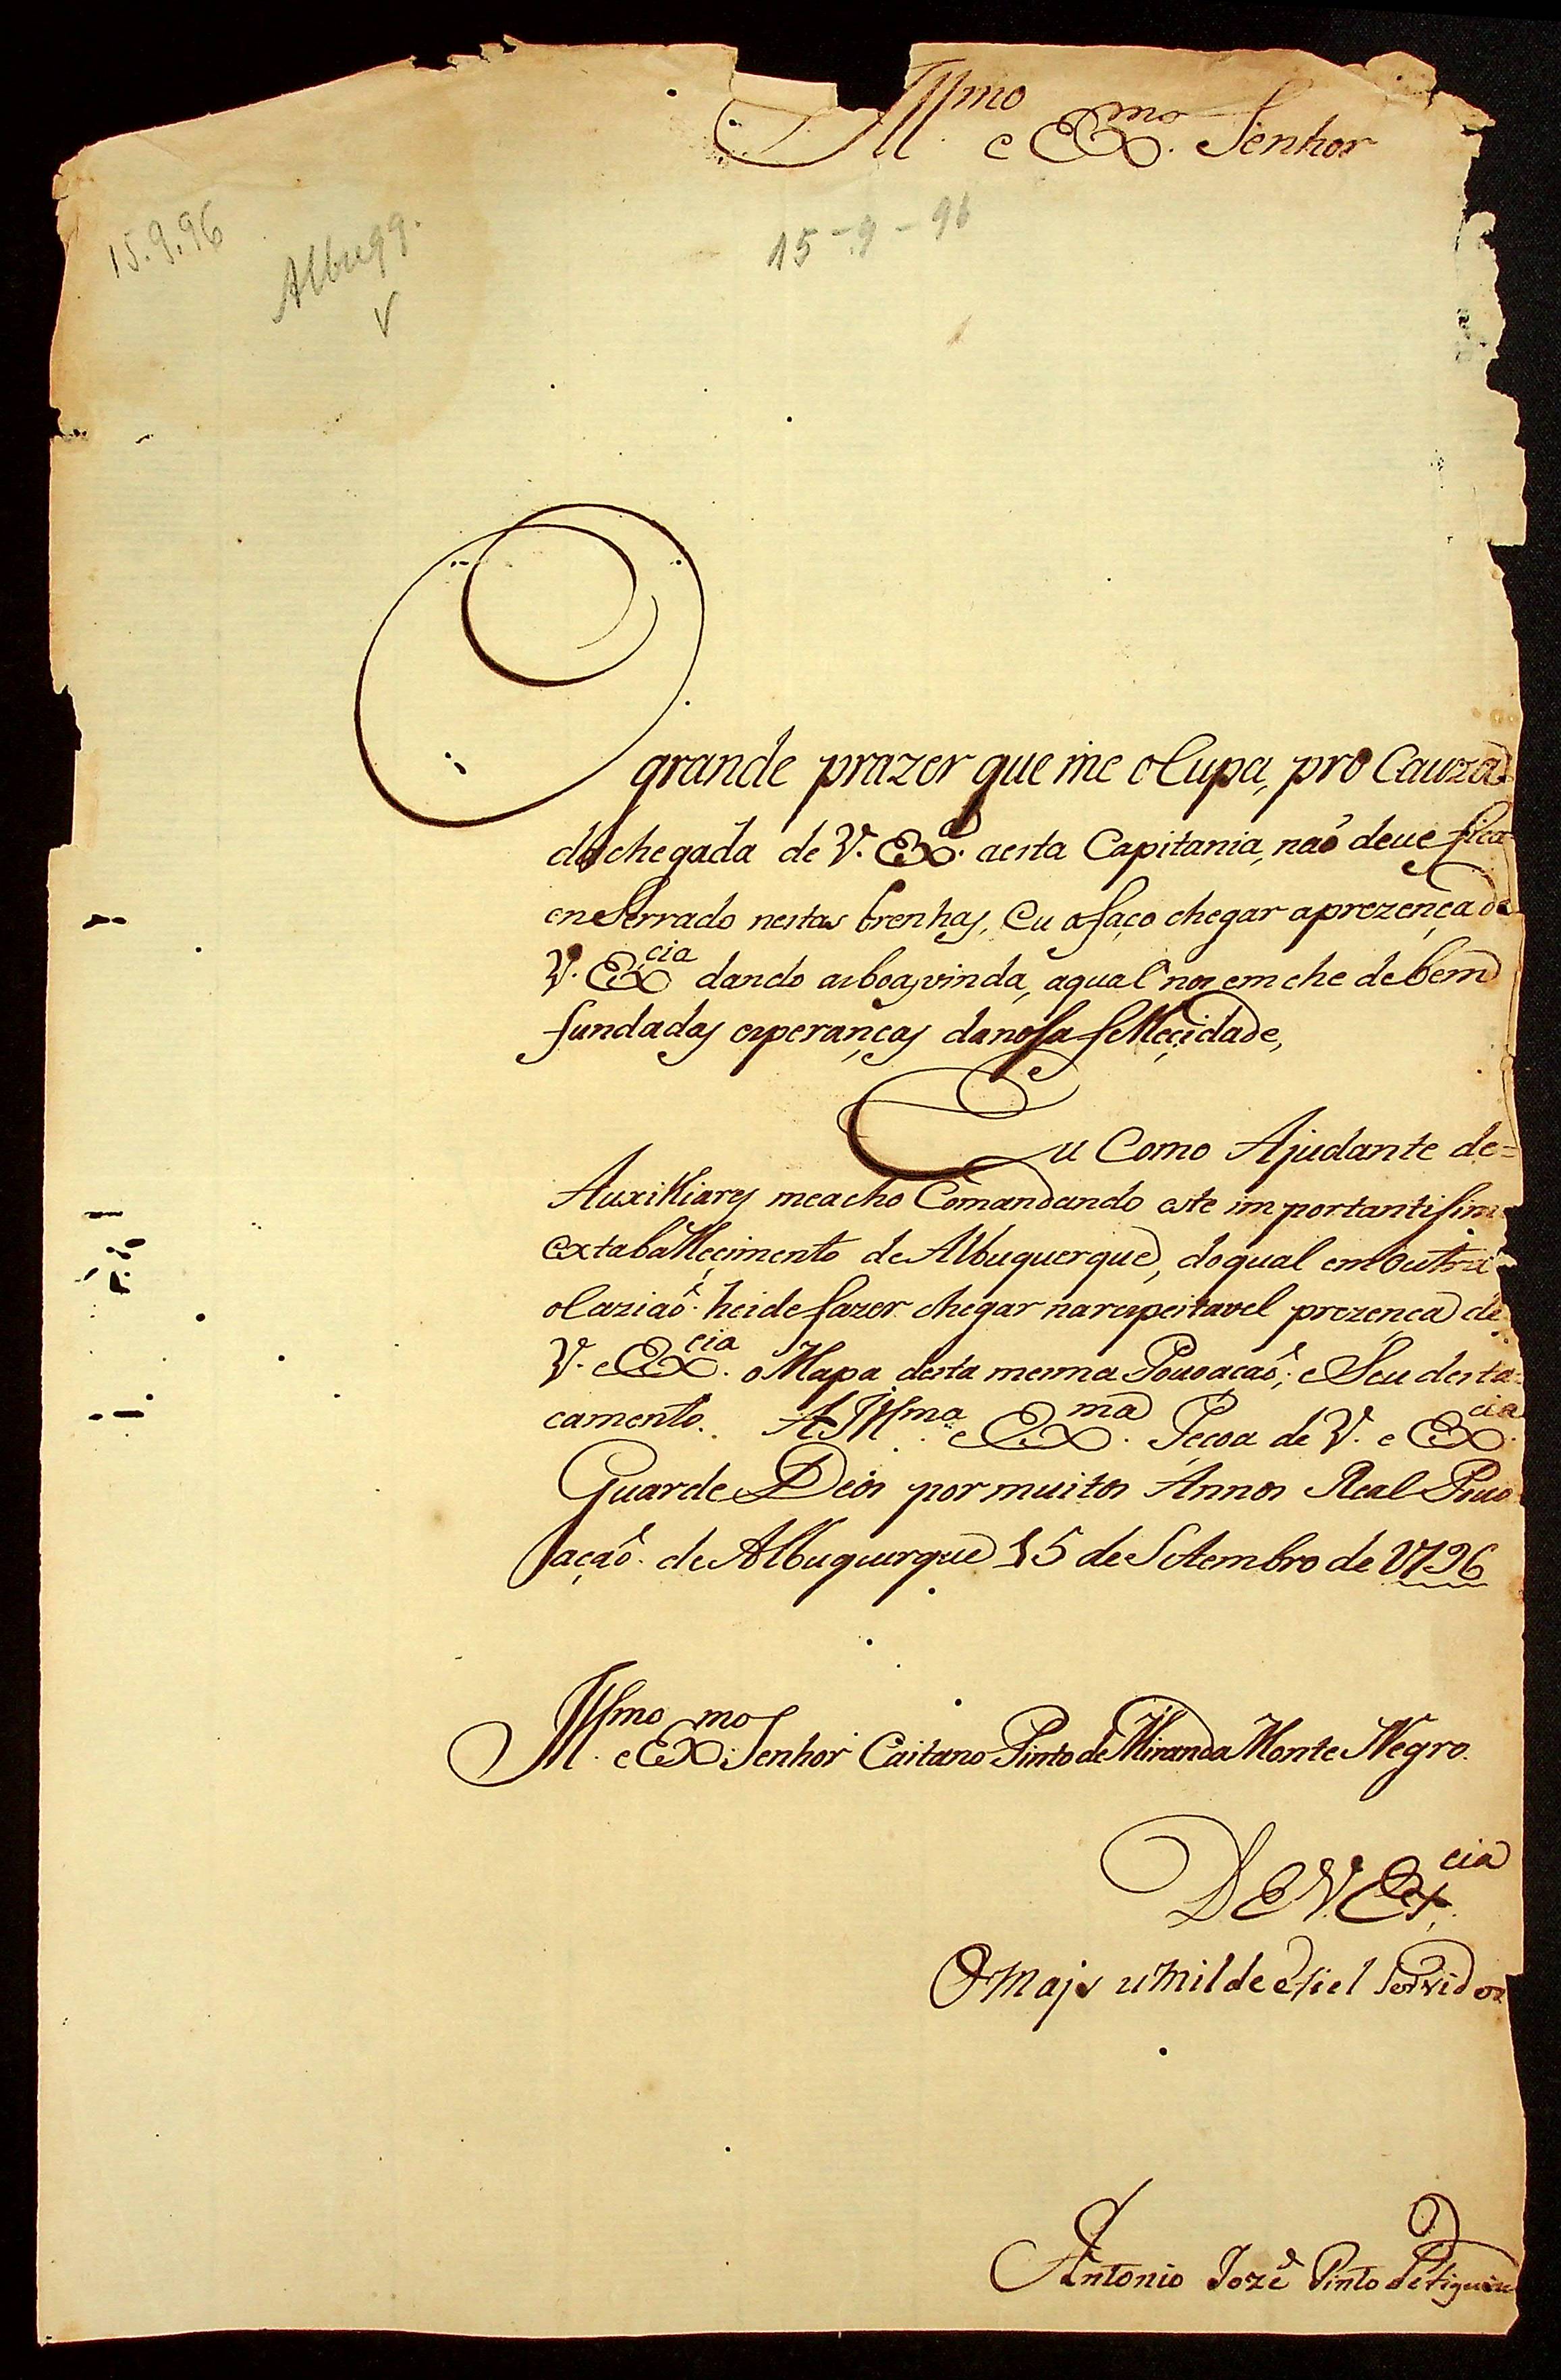 Illmo. e Exmo. Senhor
15.9.96
Albuqq.
15-9-96
O grande prazer que me ocupa, pro Cauza
da chegada de V. Exa. aesta Capitania, naõ deue fica
enserrado nestas brenhas, Eu ofaço chegar aprezença de
V. Excia dando asboasvinda, aqual nos emche de bem
fundadas esperanças danosa fellecidade,
Eu Como Ajudante de=
Auxilliares meacho Comandando este importantisimo
extaballeçimento de Albuquerque, doqual em Outra
ocaziaõ. heide fazer chegar narespeitavel prezenca de
V. Excia. o Mapa desta mesma Pouoacaõ; e Seu desta=
camento. A Illma. e Exma. Peçoa de V. e Excia.
Guarde Deos por muitos Annos Real Pouo
açaõ. de Albuquerque 15 de Setembro de 1796
Illmo. e Exmo. Senhor Caitano Pinto de Miranda Monte Negro.
DE V. Excia.
O mais umilde e fiel Servidor
Antonio Joze Pinto de Figueire